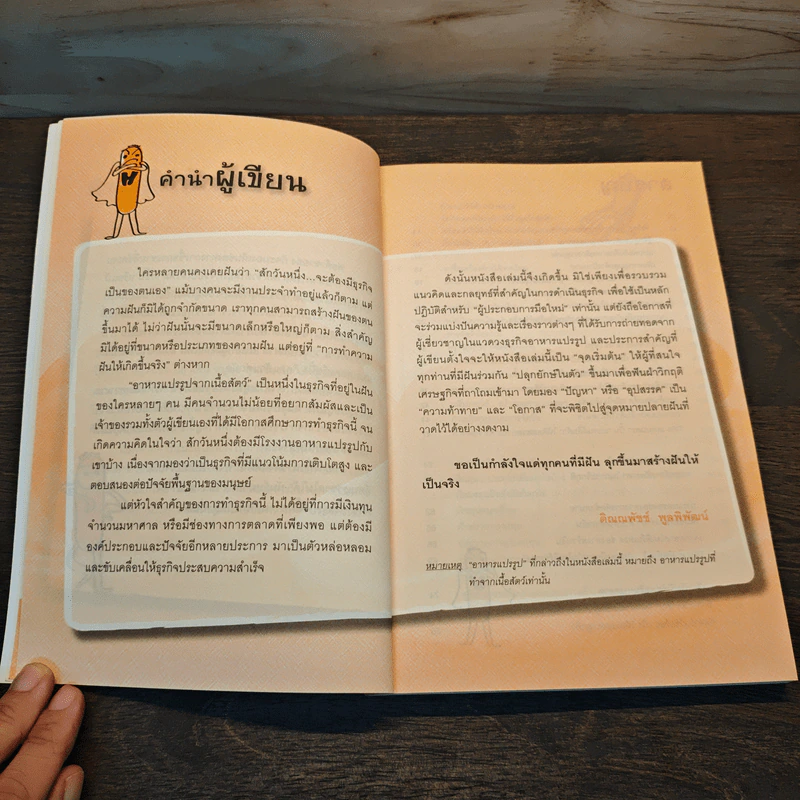 คำนำผู้เขียน
ใครหลายคนคงเคยฝันว่า “สักวันหนึ่ง...จะต้องมีธุรกิจ
เป็นของตนเอง” แม้บางคนจะมีงานประจำทำอยู่แล้วก็ตาม แต่
ความฝันก็มิได้ถูกจำกัดขนาด เราทุกคนสามารถสร้างฝันของตน
ขึ้นมาได้ ไม่ว่าฝันนั้นจะมีขนาดเล็กหรือใหญ่ก็ตาม สิ่งสำคัญ
มิได้อยู่ที่ขนาดหรือประเภทของความฝัน แต่อยู่ที่ “การทำความ
ฝันให้เกิดขึ้นจริง” ต่างหาก
“อาหารแปรรูปจากเนื้อสัตว์” เป็นหนึ่งในธุรกิจที่อยู่ในฝัน
ของใครหลายๆ คน มีคนจำนวนไม่น้อยที่อยากสัมผัสและเป็น
เจ้าของรวมทั้งตัวผู้เขียนเองที่ได้มีโอกาสศึกษาการทำธุรกิจนี้ จน
เกิดความคิดในใจว่า สักวันหนึ่งต้องมีโรงงานอาหารแปรรูปกับ
เขาบ้าง เนื่องจากมองว่าเป็นธุรกิจที่มีแนวโน้มการเติบโตสูง และ
ตอบสนองต่อปัจจัยพื้นฐานของมนุษย์
แต่หัวใจสำคัญของการทำธุรกิจนี้ ไม่ได้อยู่ที่การมีเงินทุน
จำนวนมหาศาล หรือมีช่องทางการตลาดที่เพียงพอ แต่ต้องมี
องค์ประกอบและปัจจัยอีกหลายประการ มาเป็นตัวหล่อหลอม
และขับเคลื่อนให้ธุรกิจประสบความสำเร็จ
ดังนั้นหนังสือเล่มนี้จึงเกิดขึ้น มิใช่เพียงเพื่อรวบรวม
แนวคิดและกลยุทธ์ที่สำคัญในการดำเนินธุรกิจ เพื่อใช้เป็นหลัก
ปฏิบัติสำหรับ “ผู้ประกอบการมือใหม่” เท่านั้น แต่ยังถือโอกาสที่
จะร่วมแบ่งปันความรู้และเรื่องราวต่างๆ ที่ได้รับการถ่ายทอดจาก
ผู้เชี่ยวชาญในแวดวงธุรกิจอาหารแปรรูป และประการสำคัญที่
ผู้เขียนตั้งใจจะให้หนังสือเล่มนี้เป็น “จุดเริ่มต้น” ให้ผู้ที่สนใจ
ทุกท่านที่มีฝันร่วมกัน “ปลุกยักษ์ในตัว” ขึ้นมาเพื่อฟันฝ่าวิกฤติ
เศรษฐกิจที่ถาโถมเข้ามา โดยมอง “ปัญหา” หรือ “อุปสรรค” เป็น
“ความท้าทาย” และ “โอกาส” ที่จะพิชิตไปสู่จุดหมายปลายฝันที่
วาดไว้ได้อย่างงดงาม
ขอเป็นกำลังใจแด่ทุกคนที่มีฝัน ลุกขึ้นมาสร้างฝันให้
เป็นจริง
ติณณพัชช์ พูลพิพัฒน์
หมายเหตุ “อาหารแปรรูป” ที่กล่าวถึงในหนังสือเล่มนี้ หมายถึง อาหารแปรรูปที่
ทำจากเนื้อสัตว์เท่านั้น